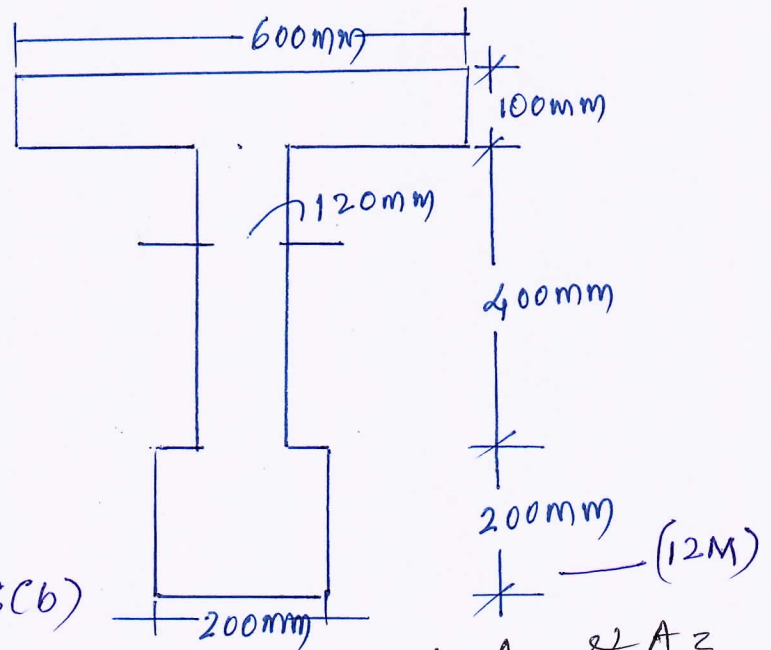 600mm
100mm
120mm
400mm
200mm
(12M)
(b)
200mm